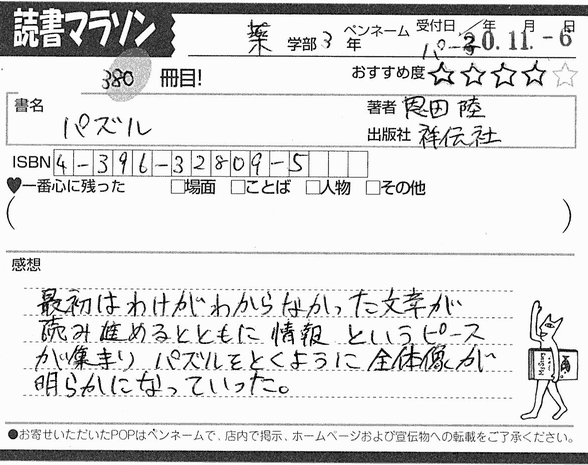 読書マラソン
薬 学部 3 年 ペンネーム 受付日 年 月 日
20.11.-6
380 冊目! おすすめ度 ☆☆☆☆☆
書名 パズル
著者 恩田 陸
出版社 祥伝社
ISBN 4-396-32809-5
♥一番心に残った □場面 □ことば □人物 □その他
( )
感想
最初はわけがわからなかった文章が
読み進めるとともに情報というピース
が集まりパズルをとくように全体像が
明らかになっていった。
●お寄せいただいたPOPはペンネームで、店内で掲示、ホームページおよび宣伝物への転載をご了承ください。